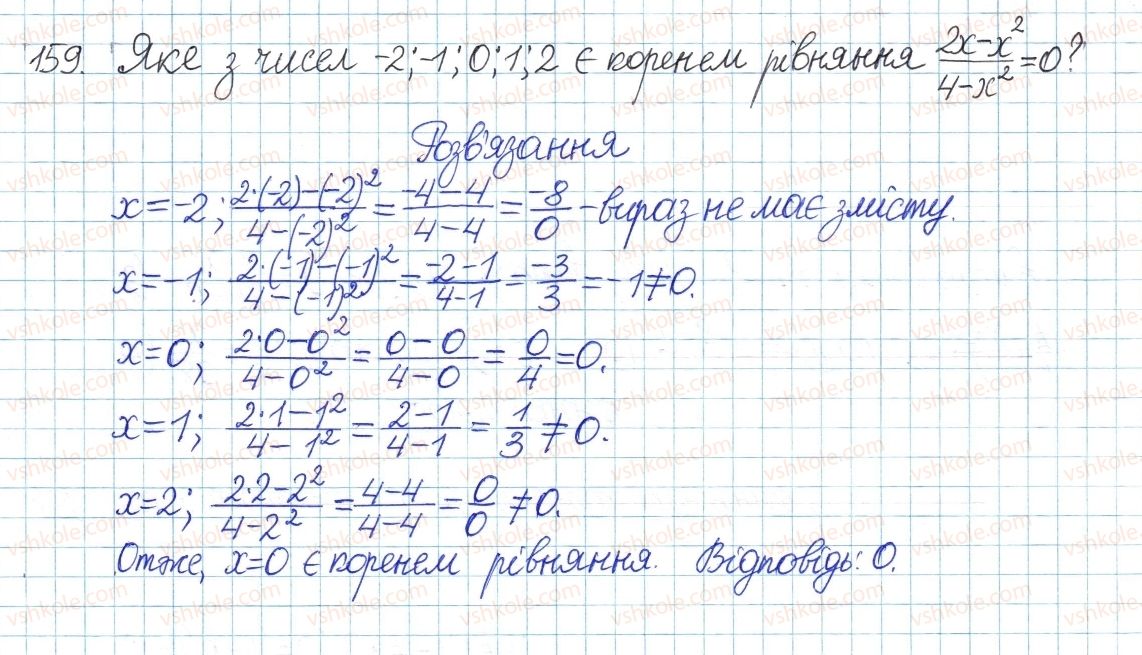 159. Яке з чисел -2; -1; 0; 1; 2 є коренем рівняння (2x-x²)/(4-x²)=0?
Розв'язання
x=-2; (2·(-2)-(-2)²)/(4-(-2)²) = (-4-4)/(4-4) = -8/0 - вираз не має змісту.
x=-1; (2·(-1)-(-1)²)/(4-(-1)²) = (-2-1)/(4-1) = -3/3 = -1≠0.
x=0; (2·0-0²)/(4-0²) = (0-0)/(4-0) = 0/4 = 0.
x=1; (2·1-1²)/(4-1²) = (2-1)/(4-1) = 1/3 ≠ 0.
x=2; (2·2-2²)/(4-2²) = (4-4)/(4-4) = 0/0 ≠ 0.
Отже, x=0 є коренем рівняння. Відповідь: 0.